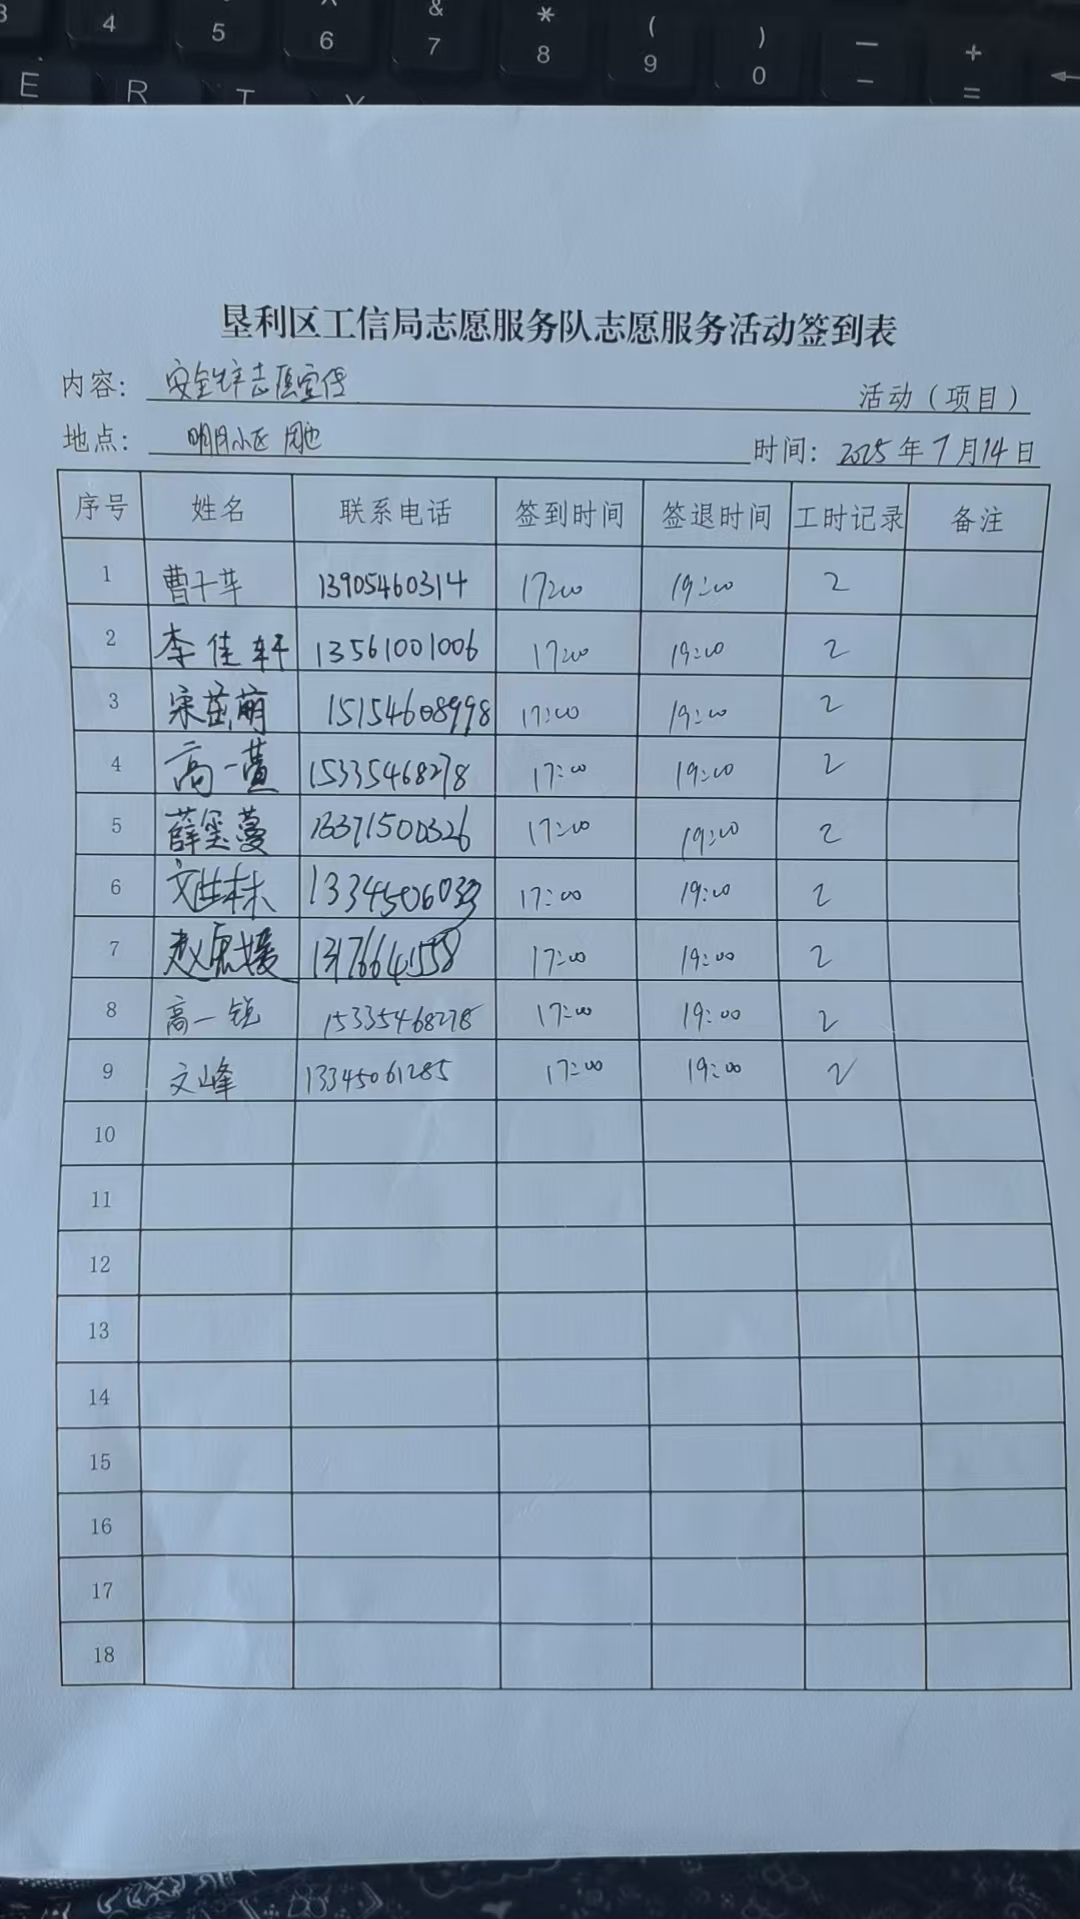 4 5 6 & 7 * 8 ( 9 ) 0 — - + =
E R T Y
垦利区工信局志愿服务队志愿服务活动签到表
内容: 安全生产志愿宣传 活动（项目）
地点: 明月小区周边 时间: 2025年7月14日
序号 姓名 联系电话 签到时间 签退时间 工时记录 备注
1 曹干苹 13905460314 17:00 19:00 2
2 李佳轩 13561001006 17:00 19:00 2
3 宋萌 15154608998 17:00 19:00 2
4 高一萱 15335468278 17:00 19:00 2
5 薛玺蔓 13371500326 17:00 19:00 2
6 17:00 19:00 2
7 赵 17:00 19:00 2
8 高一锐 15335468278 17:00 19:00 2
9 文峰 13345061285 17:00 19:00 2
10
11
12
13
14
15
16
17
18